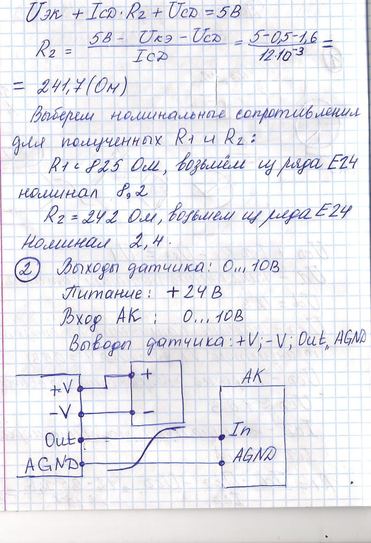 Uэк + Iсд · R2 + Uсд = 5В
R2 = (5В - Uкэ - Uсд) / Iсд = (5-0,5-1,6) / (12·10⁻³) =
= 241,7 (Ом)
Выберем номинальные сопротивления
для полученных R1 и R2:
R1 = 825 Ом, возьмём из ряда E24
номинал 8,2
R2 = 242 Ом, возьмем из ряда E24
номинал 2,4.
② Выходы датчика: 0...10В
Питание: +24В
Вход АК: 0...10В
Выводы датчика: +V; -V; Out, AGND
+V
-V
Out
AGND
+
-
АК
In
AGND